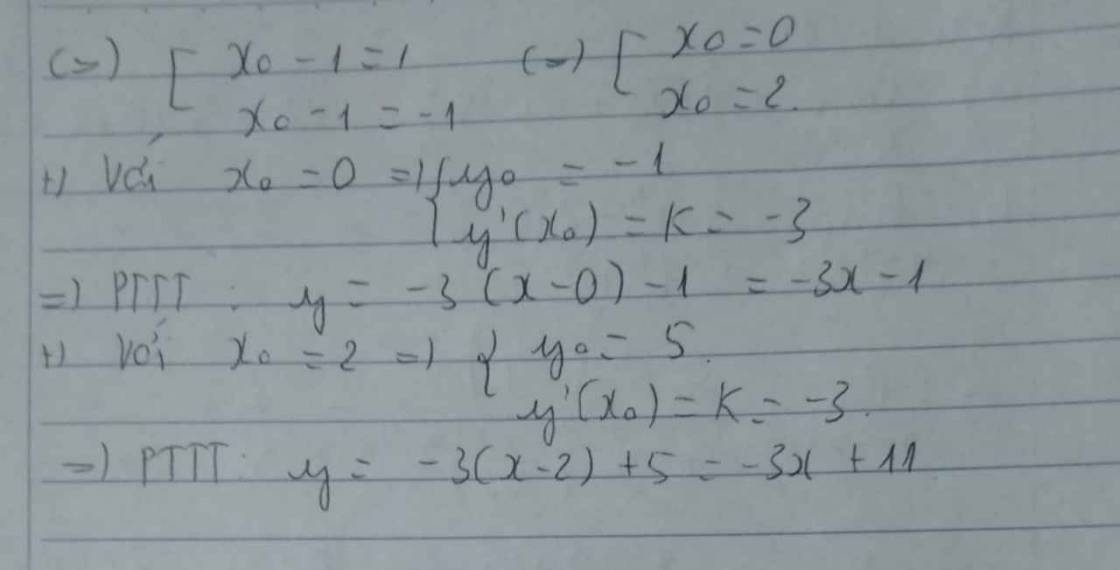 (=) [ x₀ - 1 = 1 (=) [ x₀ = 0
x₀ - 1 = -1 x₀ = 2.
+) Với x₀ = 0 =) { y₀ = -1
y'(x₀) = K = -3
=) PTTT : y = -3(x-0) - 1 = -3x - 1
+) Với x₀ = 2 =) { y₀ = 5.
y'(x₀) = K = -3.
=) PTTT: y = -3(x-2) + 5 = -3x + 11